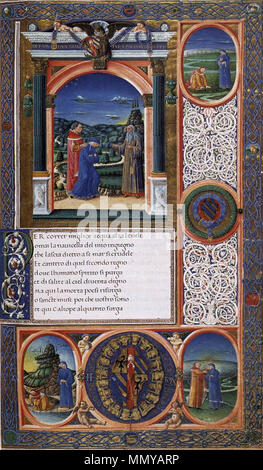 PER correr miglior acqua alza le uele
omai la nauicella del mio ingegno
che lascia dietro a se mar si crudele
Et cantero di quel secondo regno
doue lhumano spirito si purga
et di salire al ciel diuenta degno
Ma qui la morta poesi risurga
o sancte muse poi che uostro sono
et qui Caliope alquanto surga
alamy
Image ID: MMYARP
www.alamy.com